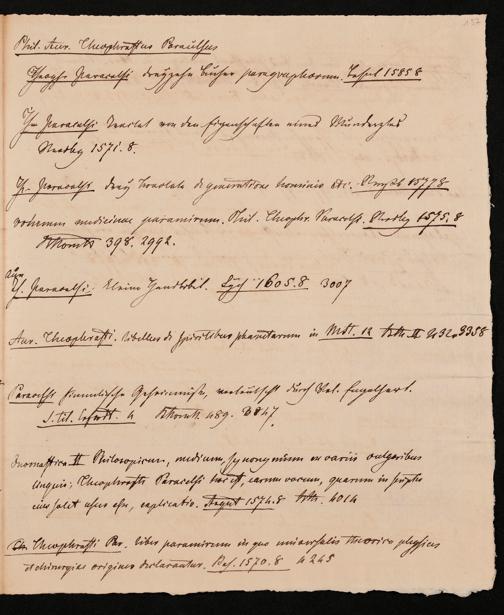 157
Phil. Aur. Theophrastus Paracelsus
Theophr. Paracelsi dreyzehn Bücher paragraphorum. Basel 1585 8
Th. Paracelsi Tractat von den Eigenschaften eines Wundarztes
1571. 8.
Th. Paracelsi drey Tractate de generatione hominis etc. 8
volumen medicinae paramirum. Phil. Theophr. Paracelsi. 1575. 8
398. 2992.
Th. Paracelsi. kleine Handbibel. 1605. 8 3007
Aur. Theophrasti. libellus de spiritibus planetarum in Mst. 12 3358
Paracelsi himmlische Geheimnisse, verteutscht durch Val. Engelhart.
4 489. 3847
Onomastica II Philosophicum, medicum, synonymum ex variis vulgaribus
linguis: Theophrasti Paracelsi hoc est, earum vocum, quarum in scriptis
eius solet usus esse, explicatio. 1574. 8 4014
Theophrasti Par. liber paramirum in quo universalis theorica physicae
et chirurgiae origines declarantur. Bas. 1570. 8 4245